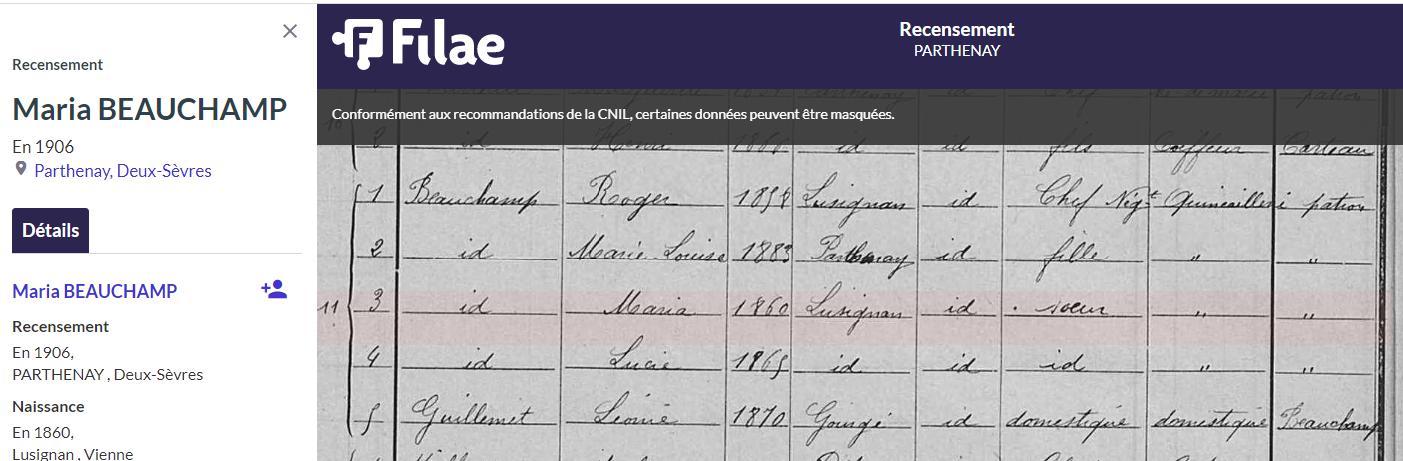 Recensement
Maria BEAUCHAMP
En 1906
Parthenay, Deux-Sèvres
Détails
Maria BEAUCHAMP
Recensement
En 1906,
PARTHENAY , Deux-Sèvres
Naissance
En 1860,
Lusignan , Vienne
Filae
Recensement
PARTHENAY
Conformément aux recommandations de la CNIL, certaines données peuvent être masquées.
2 id Henri id id fils Coiffeur
1 Beauchamp Roger 1858 Lusignan id Chef Nigt Quincailleri patron
2 id Marie Louise 1883 Parthenay id fille " "
11 3 id Maria 1860 Lusignan id . soeur " "
4 id Lucie 1865 id id id " "
5 Guillemet Léonie 1870 Gourgé id domestique domestique Beauchamp